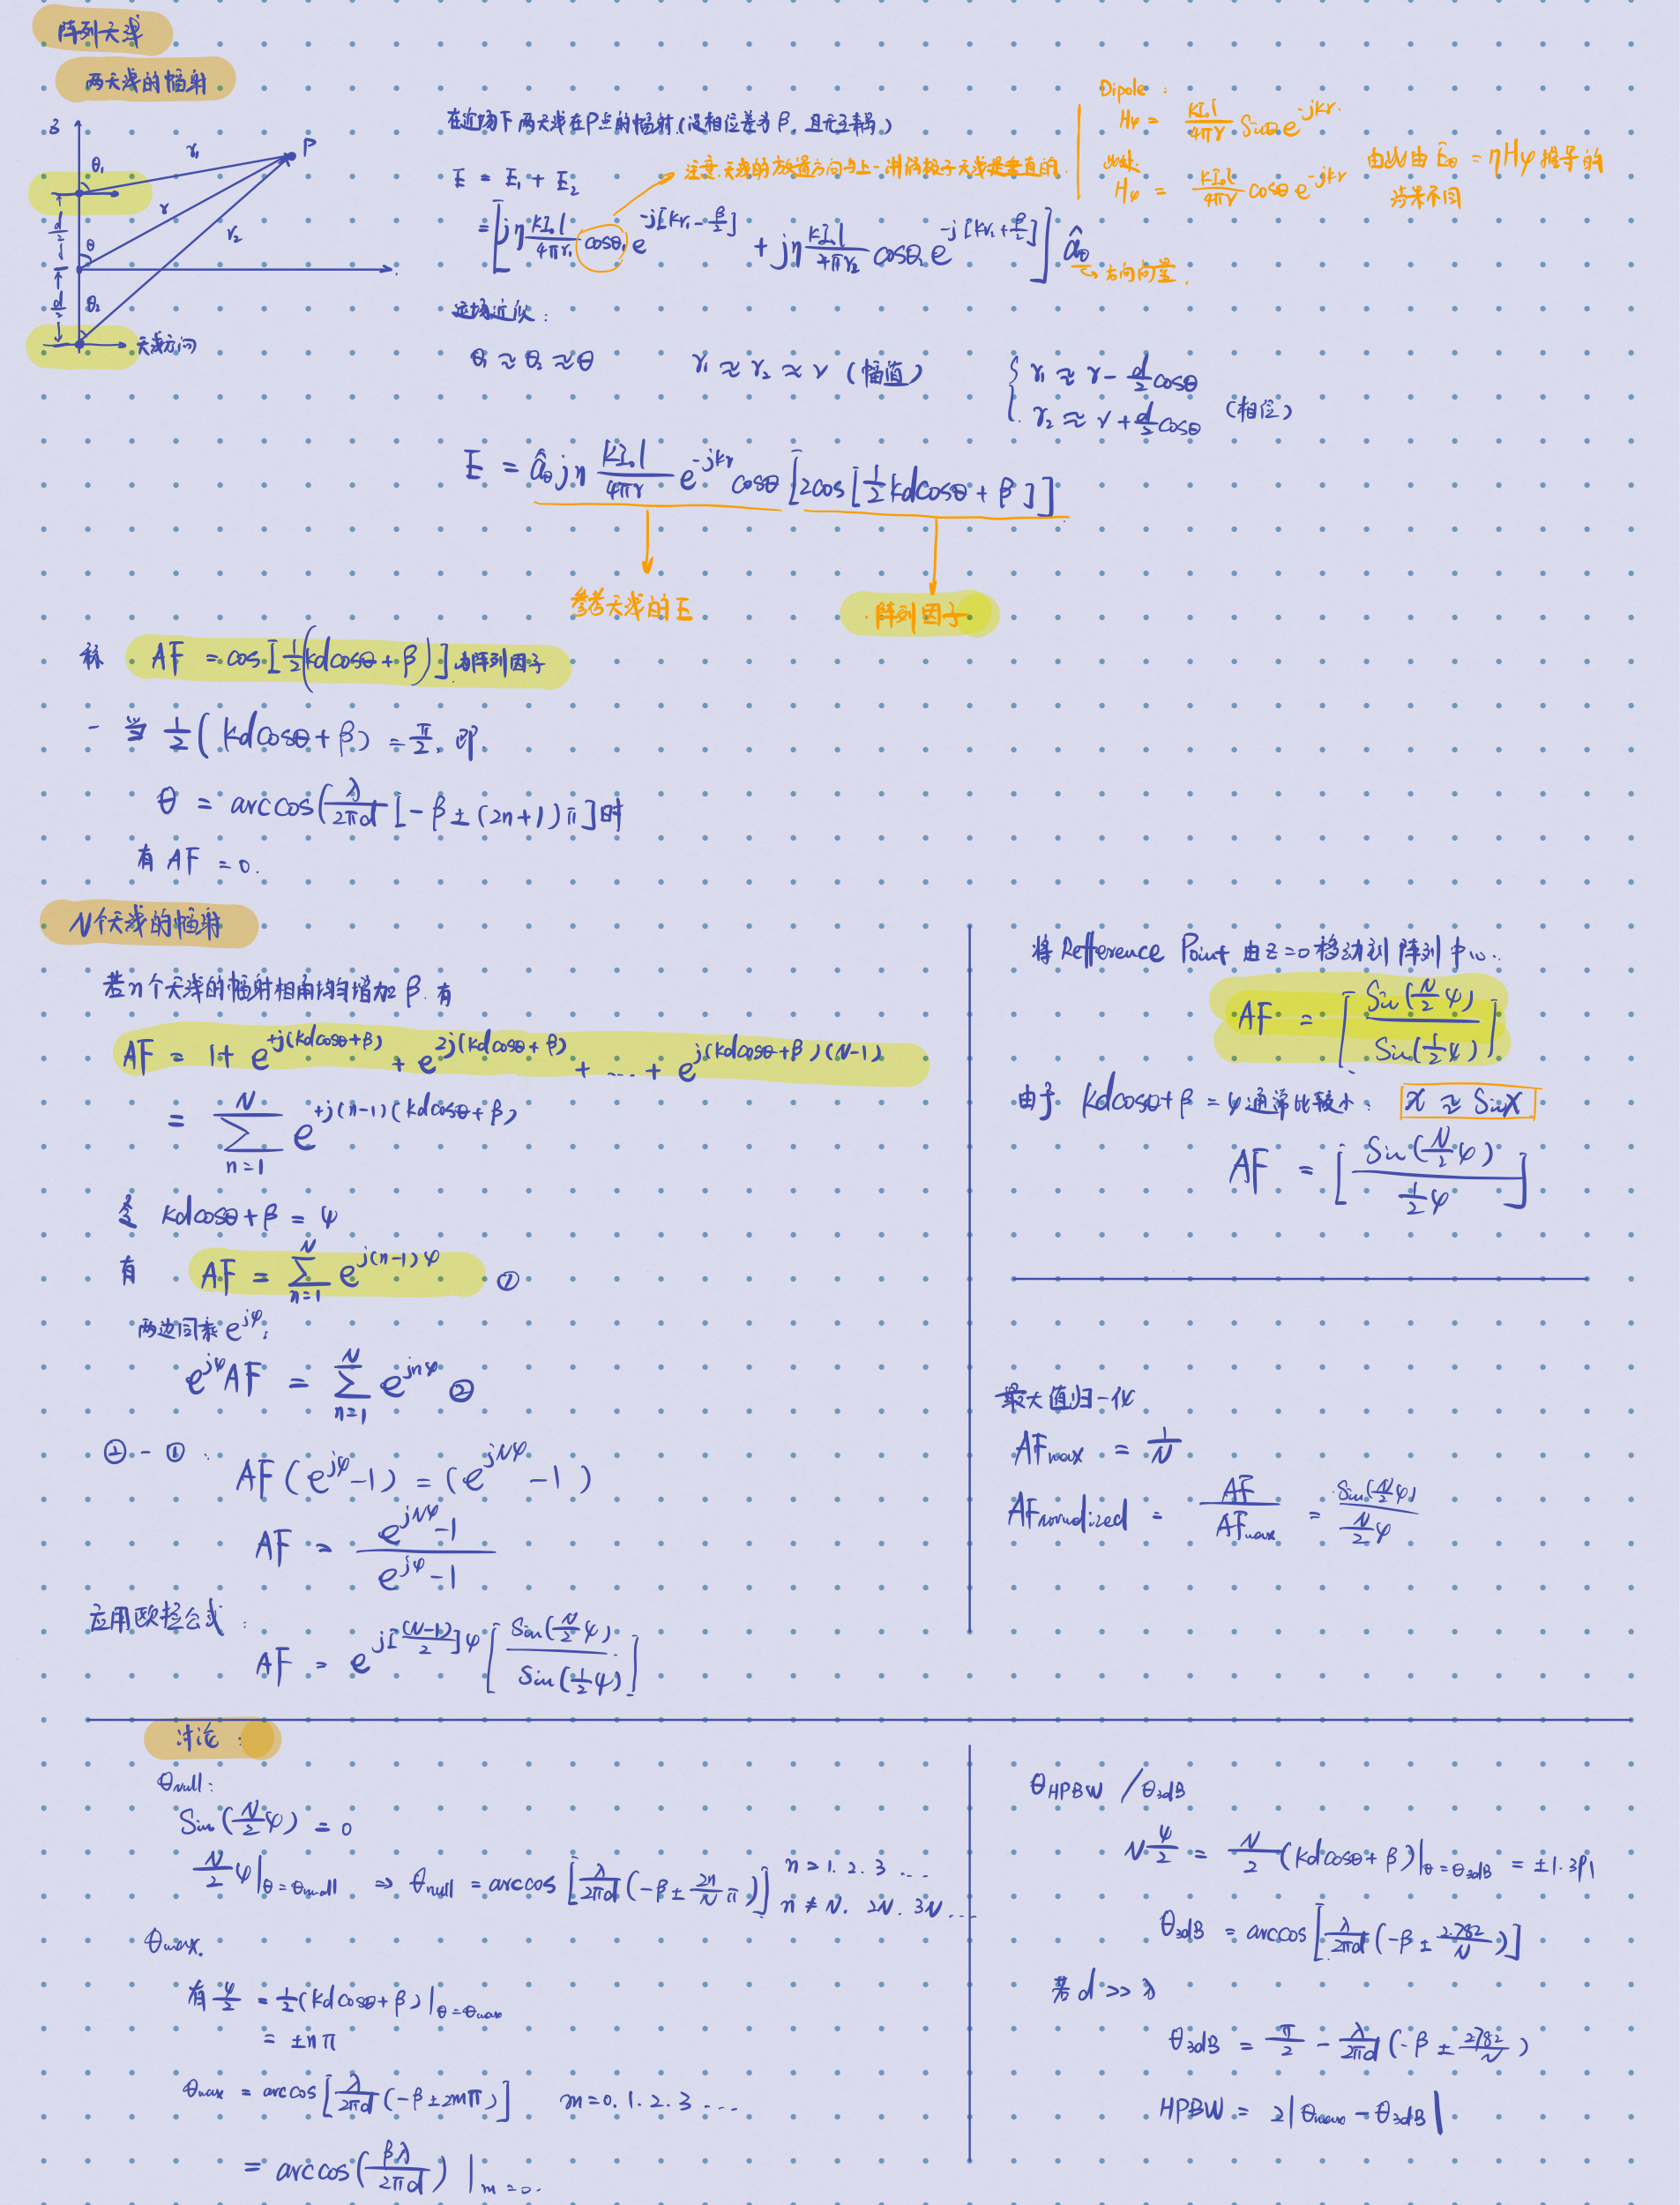 阵列天线
两天线的幅射
z
P
r₁
θ₁
r
r₂
d/2
θ
d/2
θ₂
天线方向
在近场下 两天线在P点的幅射.(设相位差为 β. 且无互耦)
E = E₁ + E₂
注意.天线的放置方向与上一测得偶极子天线是垂直的.
= [jη kI₀l/4πr₁ cosθ₁ e^{-j[kr₁ - β/2]} + jη kI₀l/4πr₂ cosθ₂ e^{-j[kr₂ + β/2]}] â_θ
方向向量.
Dipole :
Hφ = kI₀l/4πr Sinθ e^{-jkr}.
此处:
Hφ = kI₀l/4πr cosθ e^{-jkr}
由此由 Eθ = ηHφ 推导的
结果不同
远场近似 :
θ₁ ≈ θ₂ ≈ θ
r₁ ≈ r₂ ≈ r (幅值)
r₁ ≈ r - d/2 cosθ
r₂ ≈ r + d/2 cosθ
(相位)
E = â_θ jη kI₀l/4πr e^{-jkr} cosθ [2cos[1/2 kdcosθ + β]]
参考天线的E
阵列因子
称 AF = cos[1/2(kdcosθ + β)] 为阵列因子
- 当 1/2( kdcosθ + β) = π/2, 即
θ = arccos(λ/2πd [-β ± (2n+1)π] 时
有 AF = 0.
N个天线的幅射
若n个天线的幅射相角均增加 β. 有
AF = 1 + e^{+j(kdcosθ+β)} + e^{2j(kdcosθ+β)} + ... + e^{j(kdcosθ+β)(N-1)}
= Σ_{n=1}^{N} e^{+j(n-1)(kdcosθ+β)}
令 kdcosθ + β = ψ
有 AF = Σ_{n=1}^{N} e^{j(n-1)ψ} ①
两边同乘 e^{jψ}:
e^{jψ}AF = Σ_{n=1}^{N} e^{jnψ} ②
② - ① :
AF(e^{jψ} - 1) = (e^{jNψ} - 1)
AF = e^{jNψ} - 1 / e^{jψ} - 1
应用欧拉公式 :
AF = e^{j[(N-1)/2]ψ} [Sin(N/2 ψ) / Sin(1/2 ψ)]
将 Refference Point 由 z=0 移动到 阵列中心.
AF = [Sin(N/2 ψ) / Sin(1/2 ψ)]
由于 kdcosθ + β = ψ 通常比较小 : x ≈ Sinx
AF = [Sin(N/2 ψ) / 1/2 ψ]
最大值归一化
AFmax = 1/N
AFnormalized = AF/AFmax = Sin(N/2 ψ) / N/2 ψ
讨论 :
θnull :
Sin(N/2 ψ) = 0
N/2 ψ|θ=θnull ⇒ θnull = arccos[λ/2πd (-β ± 2n/N π)] n = 1. 2. 3 ...
n ≠ N. 2N. 3N ...
θmax.
有 ψ/2 = 1/2(kdcosθ + β)|θ=θmax
= ±nπ
θmax = arccos[λ/2πd (-β ± 2mπ)] m = 0. 1. 2. 3 ...
= arccos(βλ/2πd)|m=0.
θHPBW / θ3dB
N ψ/2 = N/2 (kdcosθ + β)|θ=θ3dB = ±1.391
θ3dB = arccos[λ/2πd (-β ± 2.782/N)]
若 d >> λ
θ3dB = π/2 - λ/2πd (-β ± 2.782/N)
HPBW = 2|θmax - θ3dB|